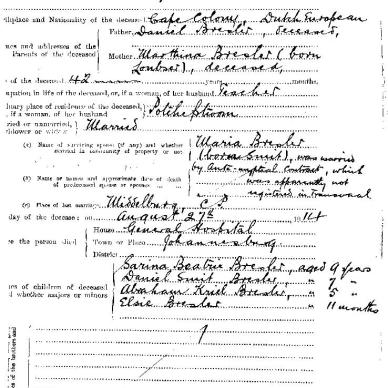 thplace and Nationality of the deceased Cape Colony, Dutch European
Father Daniel Bresler, deceased,
nes and addresses of the
Parents of the deceased
Mother Marthina Bresler (born
Loubser), deceased,
of the deceased 42 years months
upation in life of the deceased, or, if a woman, of her husband Teacher
inary place of residence of the deceased,
, if a woman, of her husband Potchefstroom
rried or unmarried,
widower or widow Married
(a) Name of surviving spouse (if any) and whether
married in community of property or not
Maria Bresler
(born Smit), was married
by Ante-nuptial Contract, which
was apparently not
registered in Transvaal
(b) Name or names and approximate date of death
of predeceased spouse or spouses
(c) Place of last marriage Middelburg, C.P.
day of the decease: on August 27th 1914
House General Hospital
e the person died Town or Place Johannesburg
District
Sarina Beatrix Bresler, aged 9 years
Daniel Smit Bresler, " 7 "
es of children of deceased
d whether majors or minors
Abraham Kriel Bresler, " 5 "
Elsie Bresler " 11 months